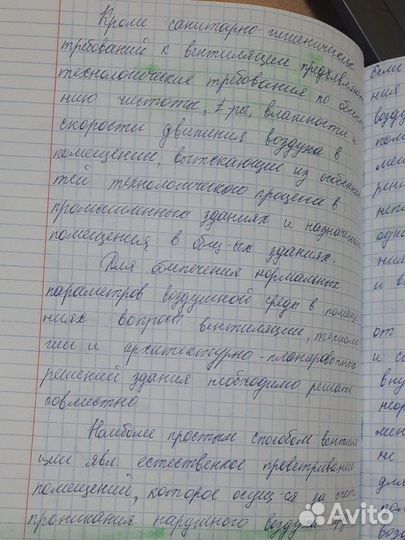 Кроме санитарно-гигиенических
требований к вентиляции предъявляют
технологические требования по обесп
нию чистоты, t-ры, влажности и
скорости движения воздуха в
помещении, вытекающие из особенно
тей технологического процесса в
промышленных зданиях и назначения
помещения в общ-ых зданиях.
Для обеспечения нормальных
параметров воздушной среды в помеще
ниях вопросы вентиляции, техноло
гии и архитектурно-планировочных
решений здания необходимо решать
совместно
Наиболее простым способом вентиля
ции явл. естественное проветривание
помещений, которое осущ-ся за счет
проникания наружного воздуха
Avito